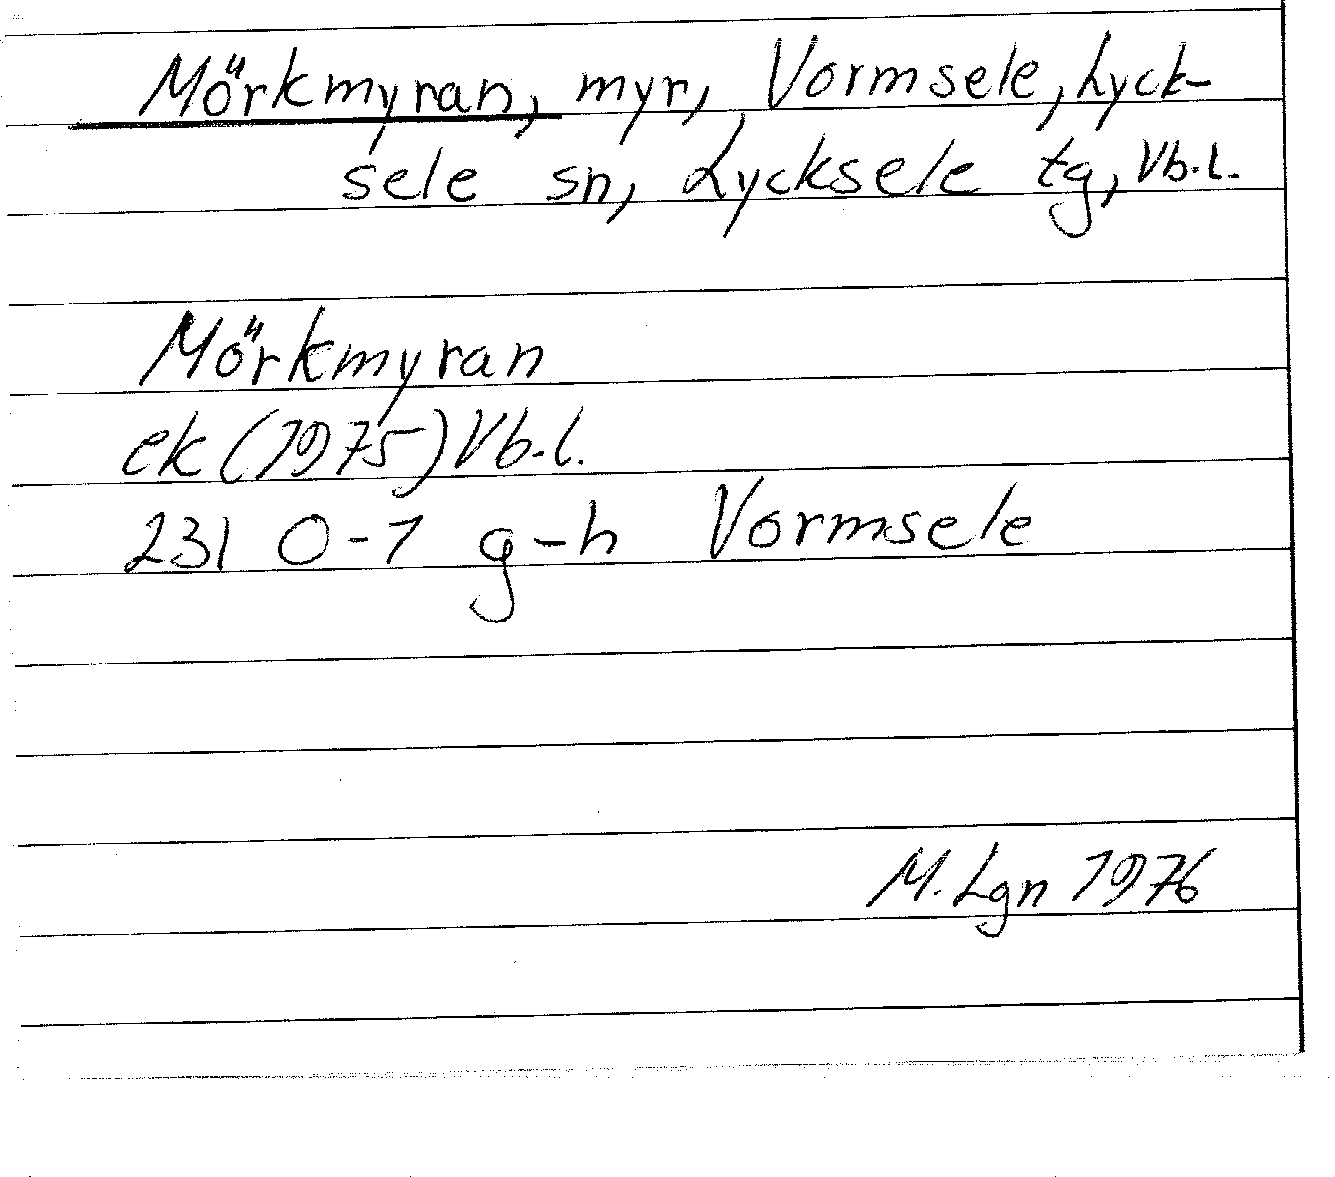 Mörkmyran, myr, Vormsele, Lyck-
sele sn, Lycksele tg, Vb.l.
Mörkmyran
ek (1975) Vb.l.
23I 0-1 g-h Vormsele
M. Lgn 1976